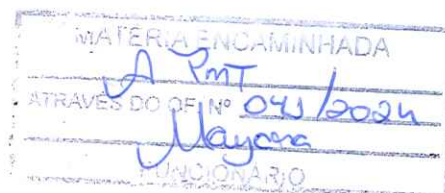 MATERIA ENCAMINHADA
A PMT
ATRAVÉS DO OF. Nº 041/2024
Mayara
FUNCIONARIO